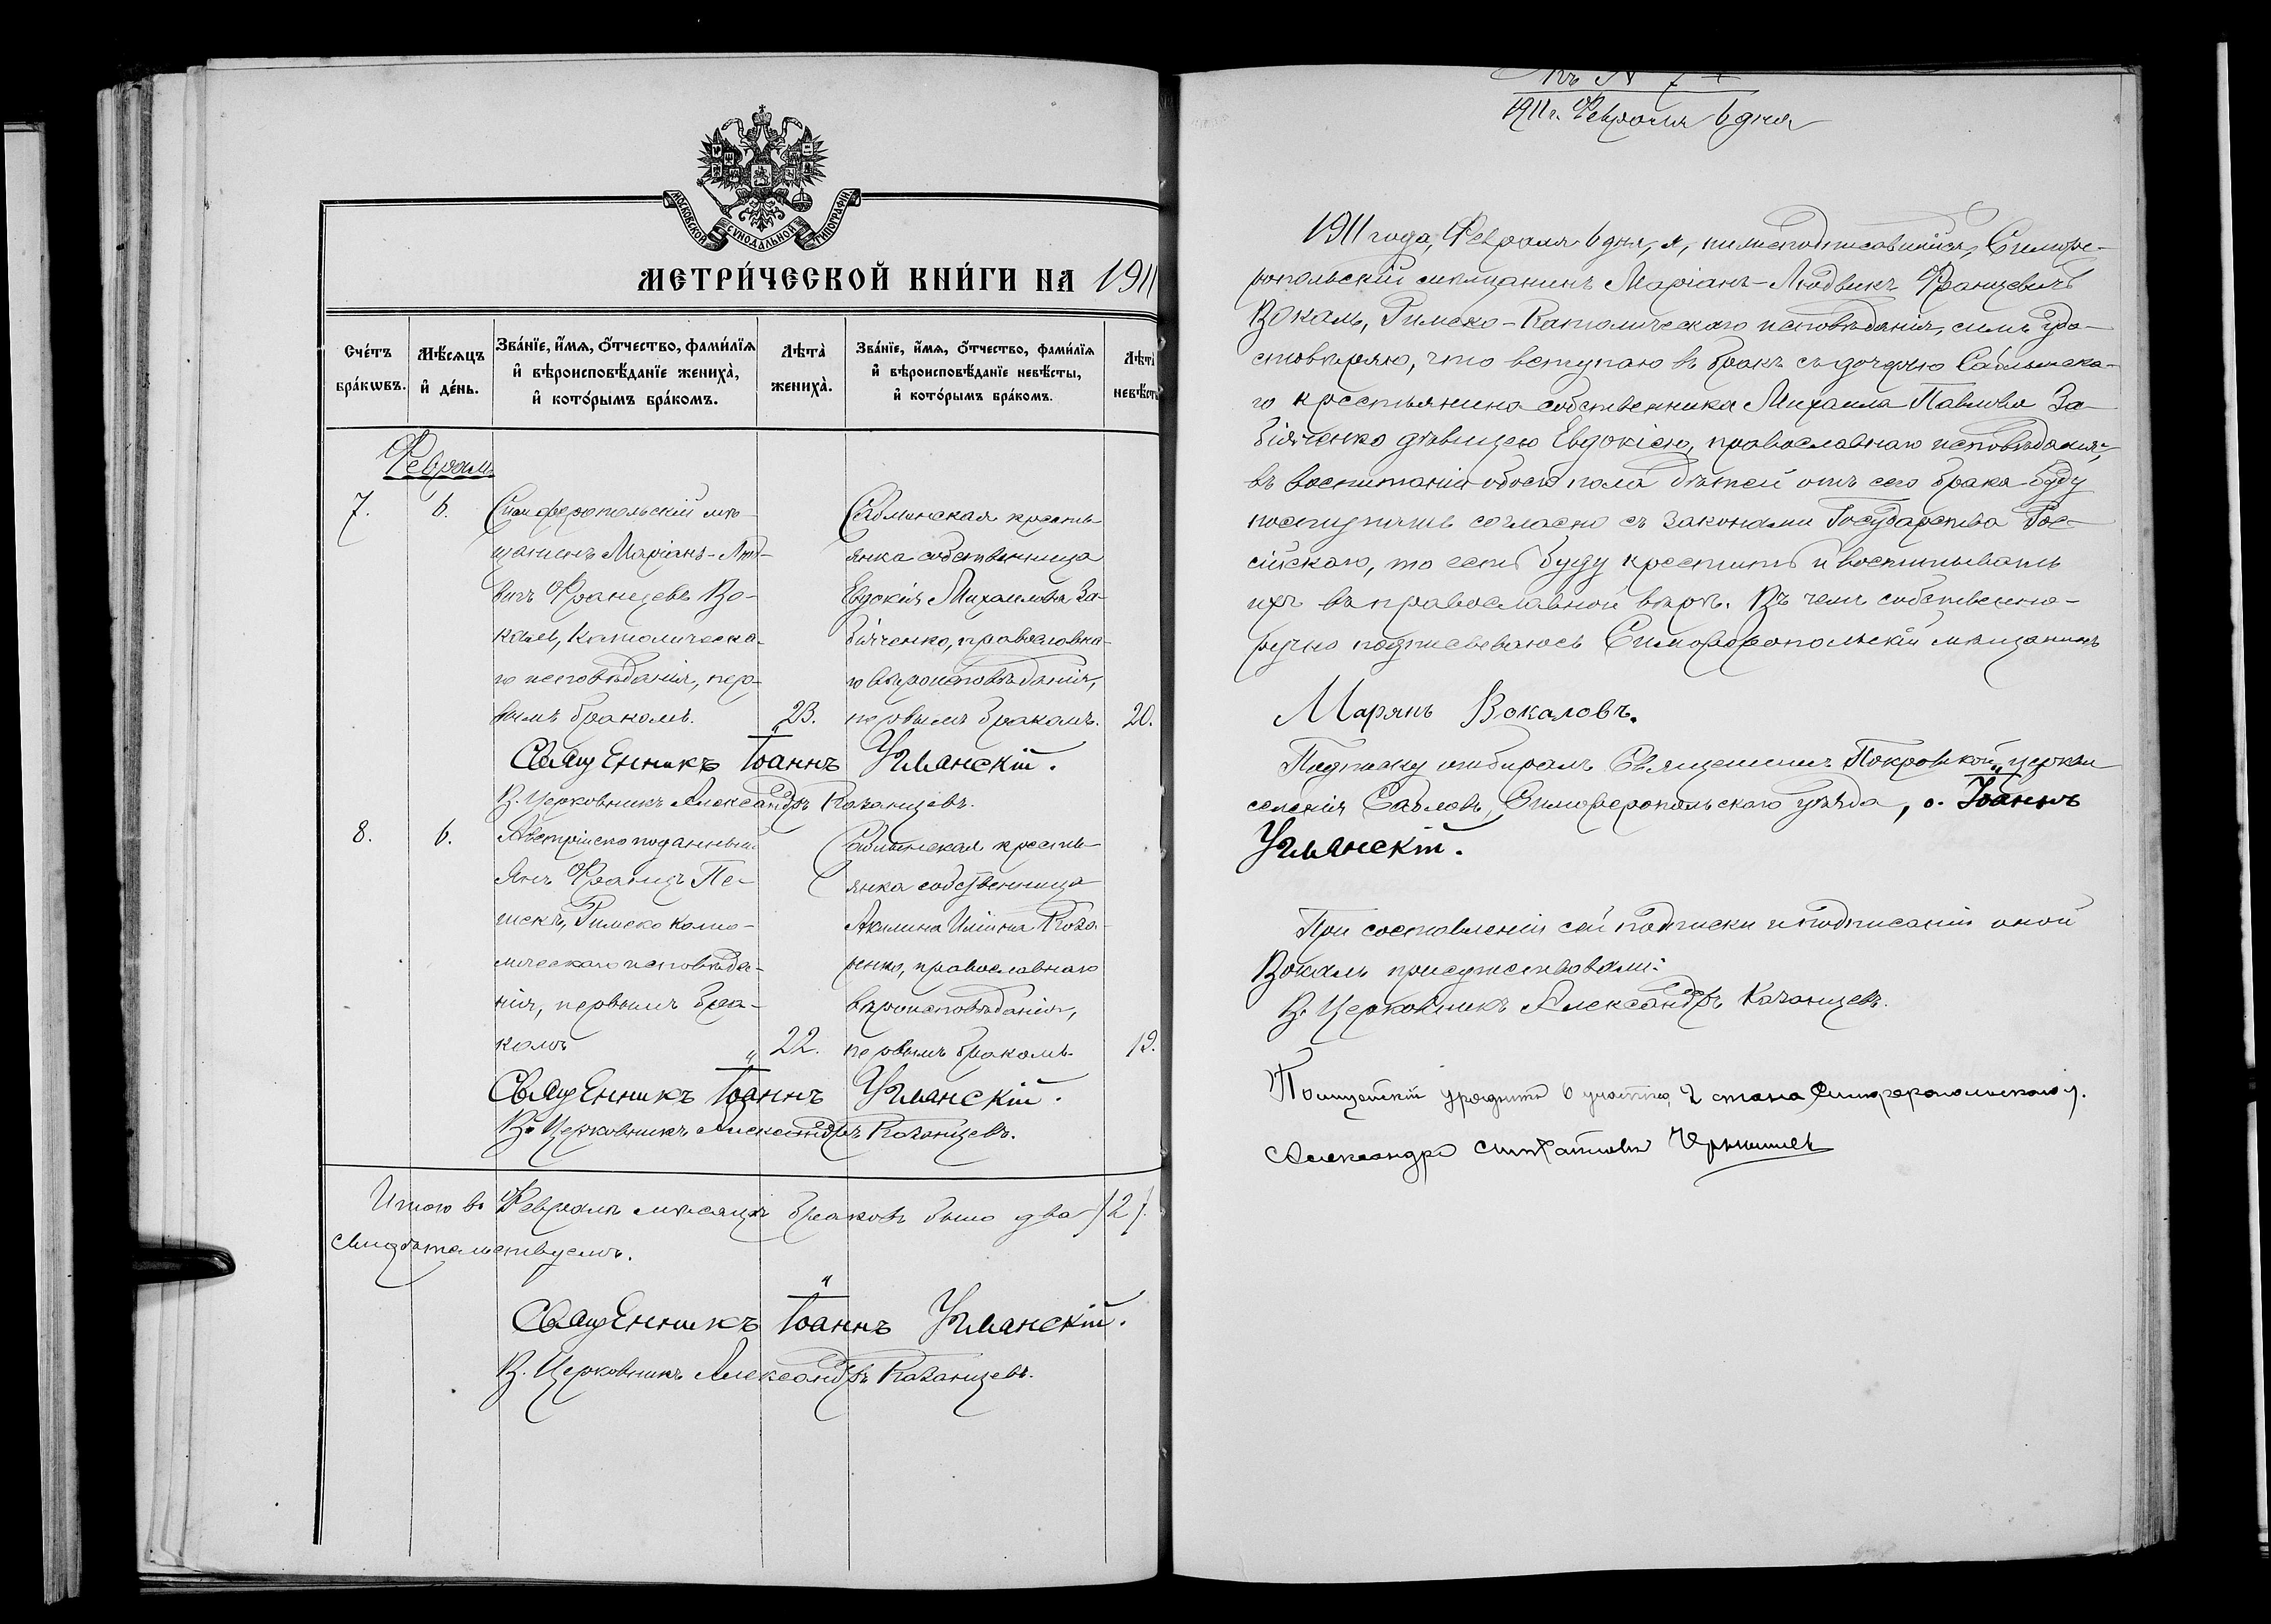 МОСКОВСКОЙ СѴНОДАЛЬНОЙ ТИПОГРАФІИ.
МЕТРИ́ЧЕСКОЙ КНИ́ГИ НА 1911
Сче́тъ бра́кѡвъ.
Мѣ́сяцъ и҆ де́нь.
Зва́нїе, и҆́мѧ, ѻ҆́тчество, фами́лїѧ
и҆ вѣроисповѣ́данїе жениха̀,
и҆ кото́рымъ бра́комъ.
Лѣта̀ жениха̀.
Зва́нїе, и҆́мѧ, ѻ҆́тчество, фами́лїѧ
и҆ вѣроисповѣ́данїе невѣ́сты,
и҆ кото́рымъ бра́комъ.
Лѣта̀ невѣ́сты
Февраль
7.
6.
Симферопольскій мѣ-
щанинъ Маріанъ-Люд-
вигъ Францевъ Во-
каль, Католическа-
го исповѣданія, пер-
вымъ бракомъ.
23.
Саблынская кресть-
янка собственница
Евдокія Михаилова За-
біяченко, православна-
го вѣроисповѣданія,
первымъ бракомъ.
20.
Священникъ Іоаннъ Уманскій.
В. Церковникъ Александръ Казанцевъ.
8.
6.
Австрійско подданный
Янъ Францъ Пе-
шекъ, Римско като-
лическаго исповѣда-
нія, первымъ бра-
комъ
22.
Саблынская кресть-
янка собственница
Акилина Ильина
православнаго
вѣроисповѣданія,
первымъ бракомъ.
19.
Священникъ Іоаннъ Уманскій.
В. Церковникъ Александръ Казанцевъ.
Итого въ Февралѣ мѣсяцѣ браковъ было два /2/.
Свидѣтельствуемъ.
Священникъ Іоаннъ Уманскій.
В. Церковникъ Александръ Казанцевъ.
Къ № 7
1911 г. Февраля 6 дня
1911 года, Февраля 6 дня, я, нижеподписавшійся, Симфе-
ропольскій мѣщанинъ Маріанъ-Людвикъ Францевичъ
Вокаль, Римско-Католическаго исповѣданія, симъ удо-
стовѣряю, что вступаю въ бракъ съ дочерью Саблынска-
го крестьянина собственника Михаила Павлова За-
біяченко дѣвицею Евдокіею, православнаго исповѣданія,
въ воспитаніи обоего пола дѣтей отъ сего брака буду
поступать согласно съ законами Государства Рос-
сійскаго, то есть буду крестить и воспитывать
ихъ въ православной вѣрѣ. Въ чемъ собственно-
ручно подписываюсь Симферопольскій мѣщанинъ
Марянъ Вокаловъ.
Подписку отбиралъ Священникъ Покровской церкви
селенія Сабловъ, Симферопольскаго уѣзда, о. Іоаннъ
Уманскій.
При составленіи сей подписки и подписаніи оной
Вокаль присутствовали:
В. Церковникъ Александръ Казанцевъ.
Полицейскій урядникъ 6 участка, 2 стана Симферопольскаго у.
Александръ